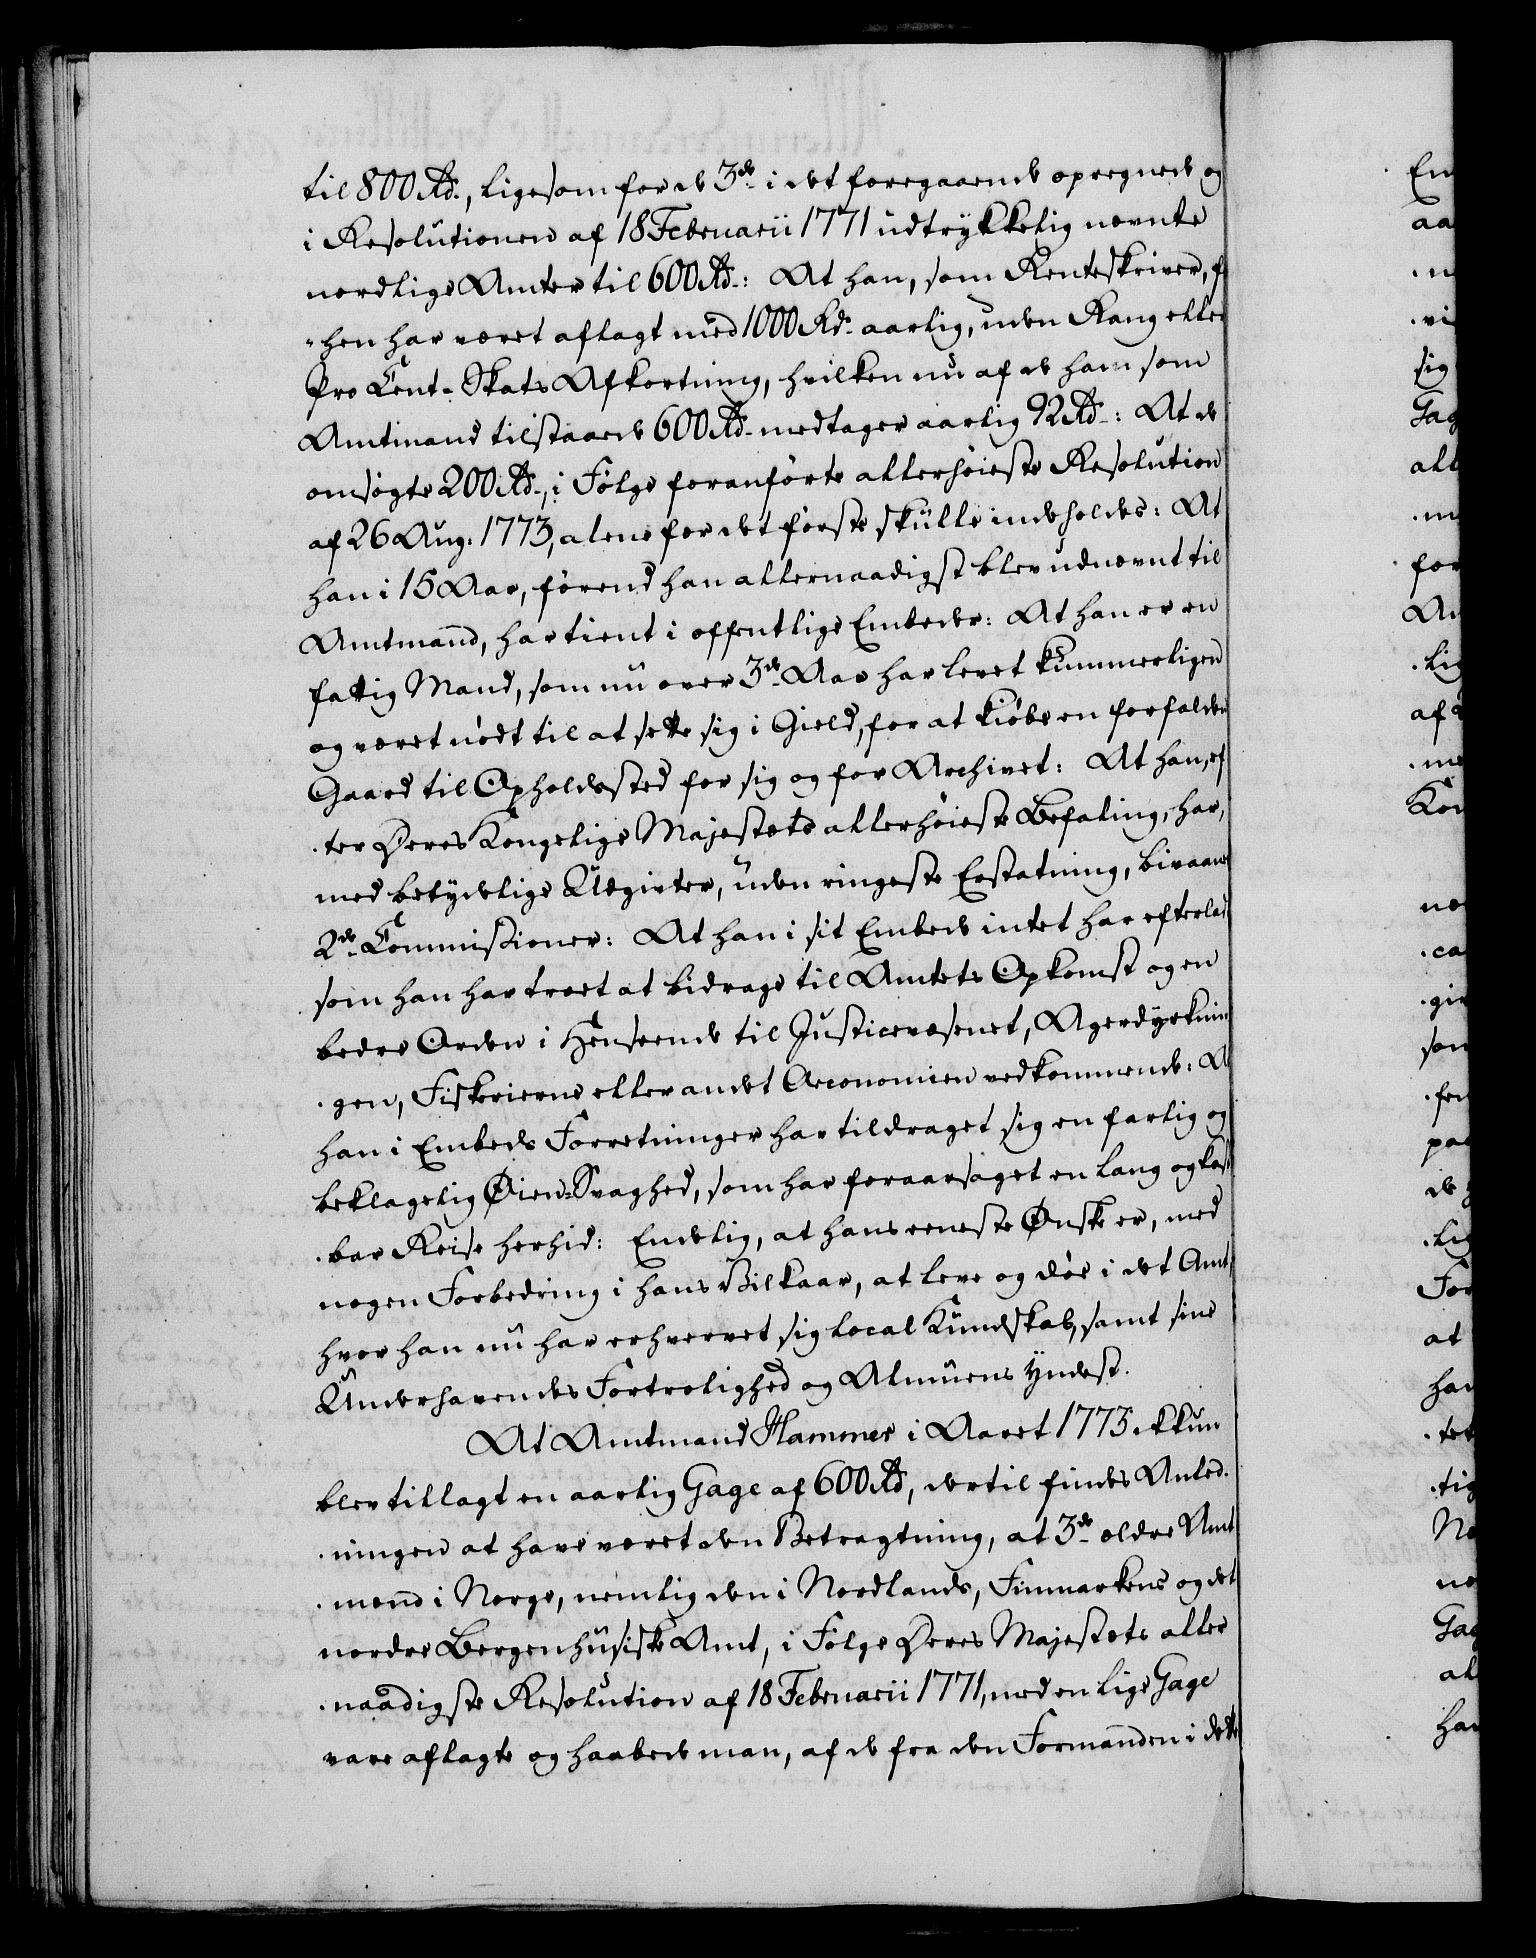 til 800 Rd., ligesom for de 3de i det foregaaende opregnede og
i Resolutionen af 18 Februarii 1771 udtrykkelig nævnte
nordlige Amter til 600 Rd.: At han, som Renteskriver, f
-hen har været aflagt med 1000 Rd. aarlig, uden Rang eller
Pro Cent-Skats Afkortning, hvilken nu af de ham som
Amtmand tilstaaede 600 Rd. medtager aarlig 92 Rd.: At de
omsøgte 200 Rd., i Følge foranførte allerhøieste Resolution
af 26 Aug. 1773, alene for det første skulle indeholdes: At
han i 15 Aar, førend han allernaadigst blev udnævnt til
Amtmand, har tient i offentlige Embeder: At han er en
fattig Mand, som nu over 3de Aar har levet kummerligen
og været nødt til at sette sig i Gield, for at kiøbe en forfalden
Gaard til Opholdssted for sig og for Archivet: At han, ef
-ter Deres Kongelige Majestets allerhøieste Befaling, har,
med betydelige Udgivter, uden ringeste Erstatning, bivaanet
2de Commissioner: At han i sit Embede intet har efterladt
som han har troet at bidrage til Amtets Opkomst og en
bedre Orden i Henseende til Justicevæsenet, Agerdyrknin
-gen, Fiskerierne eller andet Oeconomien vedkommende: At
han i Embeds Forretninger har tildraget sig en farlig og
beklagelig Øien-Svaghed, som har foraarsaget en lang og kost
-bar Reise herhid: Endelig, at hans eneste Ønske er, med
nogen Forbedring i hans Vilkaar, at leve og døe i det Amt,
hvor han nu har erhvervet sig local Kundskab, samt sine
Underhavendes Fortrolighed og Almuens Yndest.
At Amtmand Hammer i Aaret 1773 ikkun
blev tillagt en aarlig Gage af 600 Rd, dertil findes Anled-
-ningen at have været den Betragtning, at 3de ældre Amt
-mænd i Norge, nemlig den i Nordlands, Finmarkens og det
nordre Bergenhusiske Amt, i Følge Deres Majestets aller
-naadigste Resolution af 18 Februarii 1771, med en lige Gage
vare aflagte og haabede man, af de fra den Formanden i dette